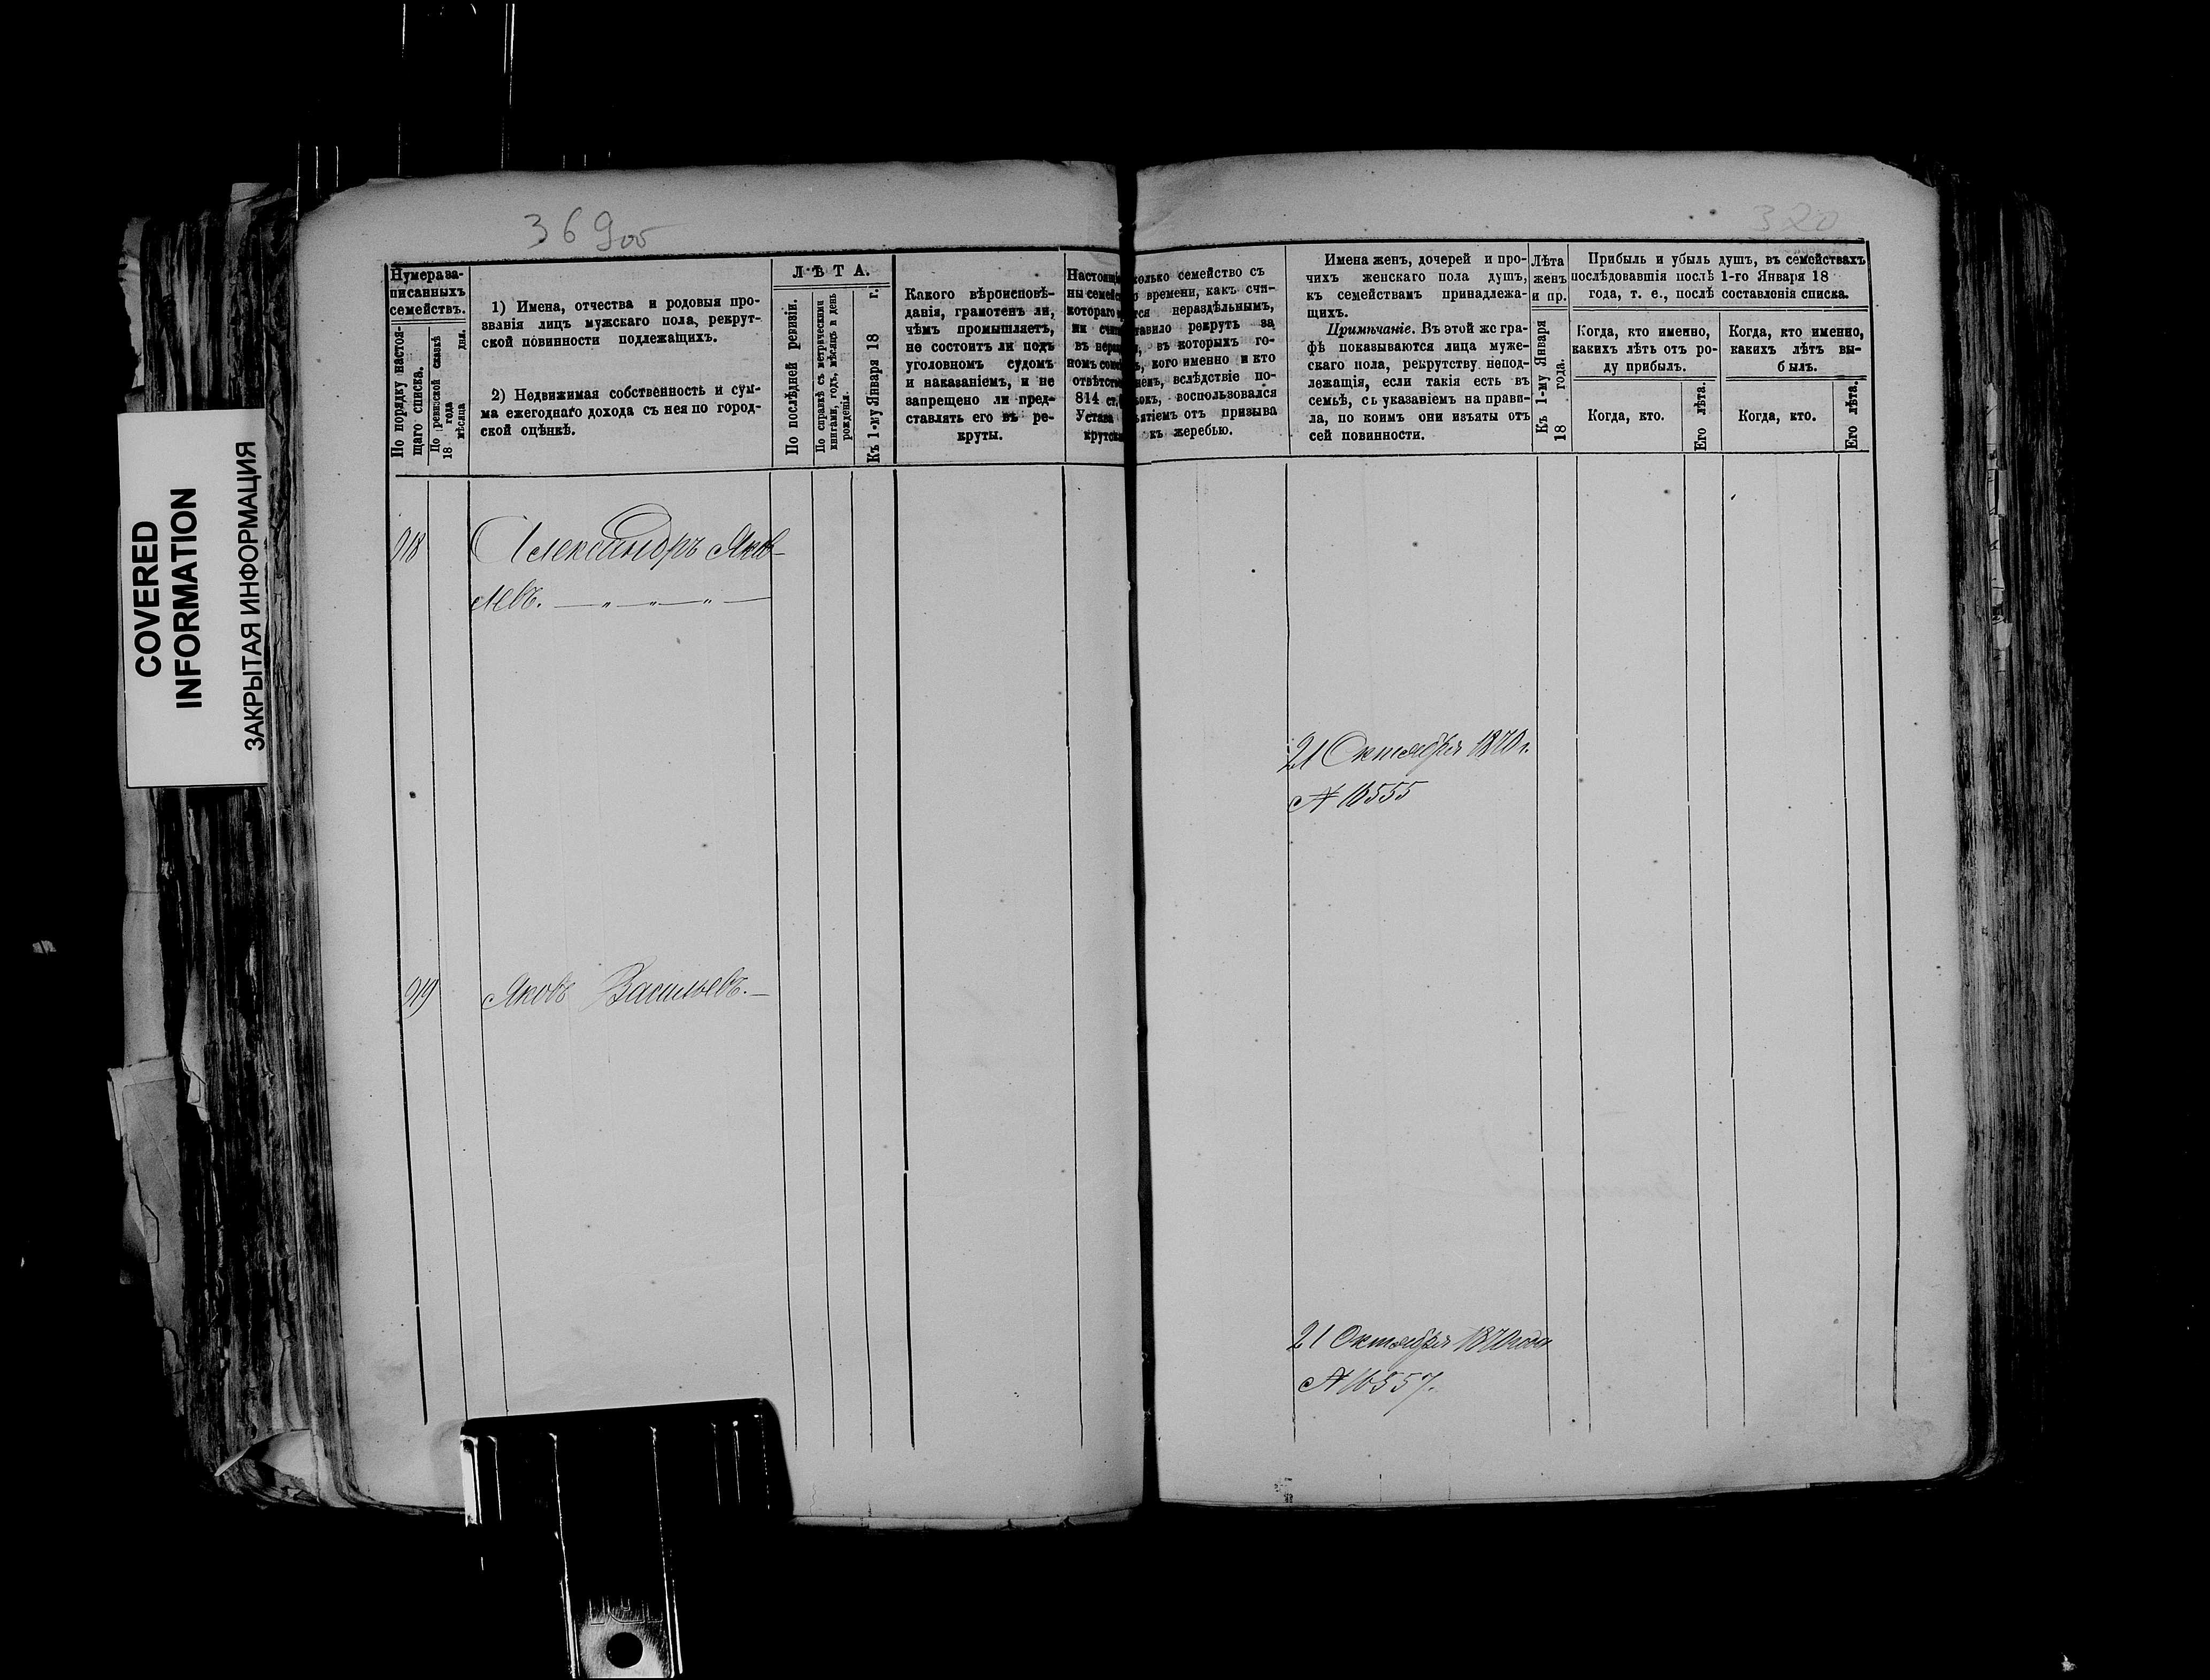 369об
320
COVERED
INFORMATION
ЗАКРЫТАЯ ИНФОРМАЦИЯ
Нумера за-
писанныхъ
семействъ.
По порядку настоя-
щаго списка.
По ревизской сказкѣ
18 года
мѣсяца дня.
1) Имена, отчества и родовыя про-
званія лицъ мужскаго пола, рекрут-
ской повинности подлежащихъ.
2) Недвижимая собственность и сум-
ма ежегоднаго дохода съ нея по город-
ской оцѣнкѣ.
ЛѢТА.
По послѣдней ревизіи.
По справкѣ съ метрическими
книгами, годъ, мѣсяцъ и день
рожденія.
Къ 1-му Января 18 г.
Какого вѣроисповѣ-
данія, грамотенъ ли,
чѣмъ промышляетъ,
не состоитъ ли подъ
уголовномъ судомъ
и наказаніемъ, и не
запрещено ли пред-
ставлять его въ ре-
круты.
Настоящ
ны семейс
котораго
ни счит
въ нераз
номъ сем
отвѣтств
814 ст.
Устава
крутск
колько семейство съ
о времени, какъ счи-
тся нераздѣльнымъ,
тавило рекрутъ за
, въ которыхъ го-
ъ, кого именно и кто
немъ, вслѣдствіе по-
окъ, воспользовался
ъятіемъ отъ призыва
къ жеребью.
Имена женъ, дочерей и про-
чихъ женскаго пола душъ,
къ семействамъ принадлежа-
щихъ.
Примѣчаніе. Въ этой же гра-
фѣ показываются лица муже-
скаго пола, рекрутству непод-
лежащія, если такія есть въ
семьѣ, съ указаніемъ на прави-
ла, по коимъ они изъяты отъ
сей повинности.
Лѣта
женъ
и пр.
Къ 1-му Января
18 года.
Прибыль и убыль душъ, въ семействахъ
послѣдовавшія послѣ 1-го Января 18
года, т. е., послѣ составленія списка.
Когда, кто именно,
какихъ лѣтъ отъ ро-
ду прибылъ.
Когда, кто.
Его лѣта.
Когда, кто именно,
какихъ лѣтъ вы-
былъ.
Когда, кто.
Его лѣта.
918 Александръ Яков-
левъ. — „ — „ — „ —
21 Октября 1870 г.
№ 16555
919 Яковъ Васильевъ. —
21 Октября 1870 года
№ 16557.